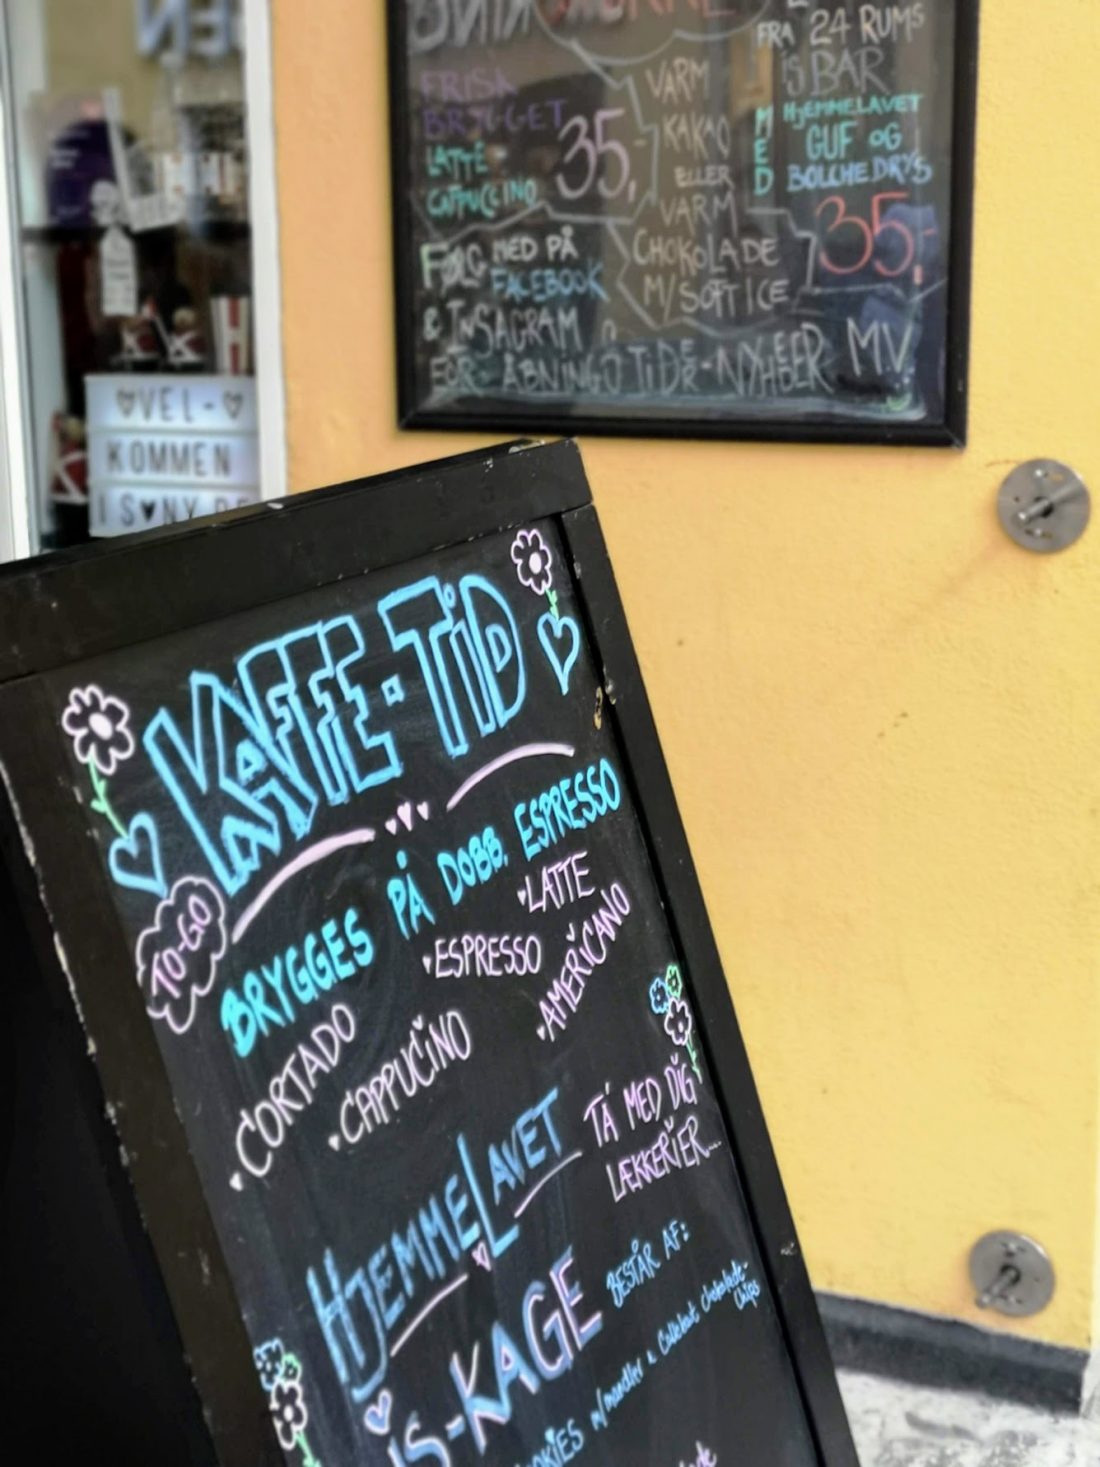 FRA 24 RUMS
IS BAR
FRISK
BRYGGET
LATTE
CAPPUCCINO
35,-
VARM
KAKAO
ELLER
VARM
CHOKOLADE
M/SOFTICE
MED
HJEMMELAVET
GUF OG
BOLCHEDRYS
35,-
FØLG MED PÅ
FACEBOOK
& INSAGRAM
FOR ÅBNINGSTIDER-NYHEDER MV
♥VEL-♥
KOMMEN
IS♥NY
KAFFE-TID
TO-GO
BRYGGES PÅ DOBB. ESPRESSO
LATTE
ESPRESSO
AMERICANO
CORTADO
CAPPUCINO
TA MED DIG
LÆKKERIER...
HJEMMELAVET
IS-KAGE
BESTÅR AF:
OOKIES m/mandler & Callebaut chokolade-
chips